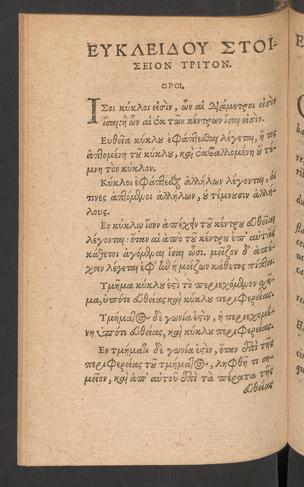 ΕΥΚΛΕΙΔΟΥ ΣΤΟΙ-
ΣΕΙΟΝ ΤΡΙΤΟΝ.
ΟΡΟΙ.
Ἴσοι κύκλοι εἰσὶν, ὧν αἱ διάμετροι εἰσὶν
ἴσαι: ἢ ὧν αἱ ἐκ τῶν κέντρων ἴσαι εἰσίν.
Εὐθεῖα κύκλου ἐφάπτεσθαι λέγεται, ἥ τις
ἁπτομένη τοῦ κύκλου, καὶ ἐκβαλλομένη οὐ τέ-
μνη τὸν κύκλον.
Κύκλοι ἐφάπτεσθαι ἀλλήλων λέγονται, οἵ
τινες ἁπτόμενοι ἀλλήλων, οὐ τέμνουσιν ἀλλή-
λους.
Ἐν κύκλῳ ἴσον ἀπέχειν τοῦ κέντρου εὐθεῖαι
λέγονται: ὅταν αἱ ἀπὸ τοῦ κέντρου ἐπ' αὐτὰς
κάθετοι ἀγόμεναι ἴσαι ὦσι. μεῖζον δ' ἀπέ-
χειν λέγεται ἐφ' ἣν ἡ μείζων κάθετος πίπτει.
Τμῆμα κύκλου ἐστὶ τὸ περιεχόμενον σχῆ-
μα, ὑπότε εὐθείας καὶ κύκλου περιφερείας.
Τμήματος δὲ γωνία ἐστὶν, ἡ περιεχομέ-
νη ὑπότε εὐθείας, καὶ κύκλου περιφερείας.
Ἐν τμήματι δὲ γωνία ἐστὶν, ὅταν ἐπὶ τῆς
περιφερείας τοῦ τμήματος, ληφθῇ τι ση-
μεῖον, καὶ ἀπ' αὐτοῦ ἐπὶ τὰ πέρατα τῆς
εὐθείας